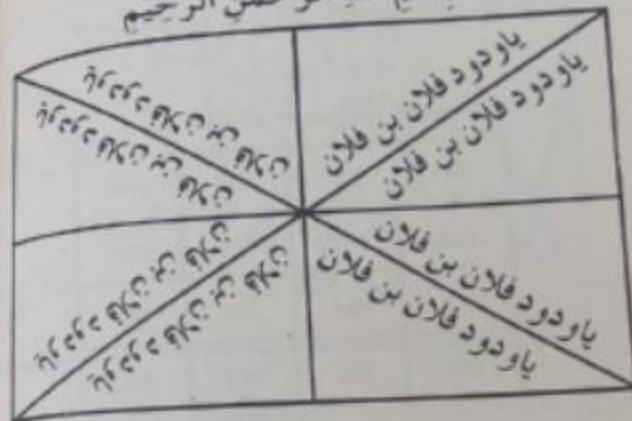 الرحيم
ياودود فلان بن فلان
ياودود فلان بن فلان
ياودود فلان بن فلان
ياودود فلان بن فلان
ياودود فلان بن فلان
ياودود فلان بن فلان
ياودود فلان بن فلان
ياودود فلان بن فلان